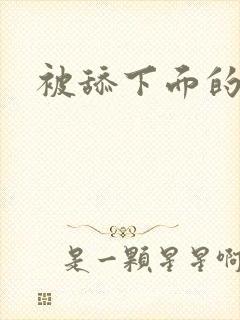 被舔下而的
是一顆星星啊